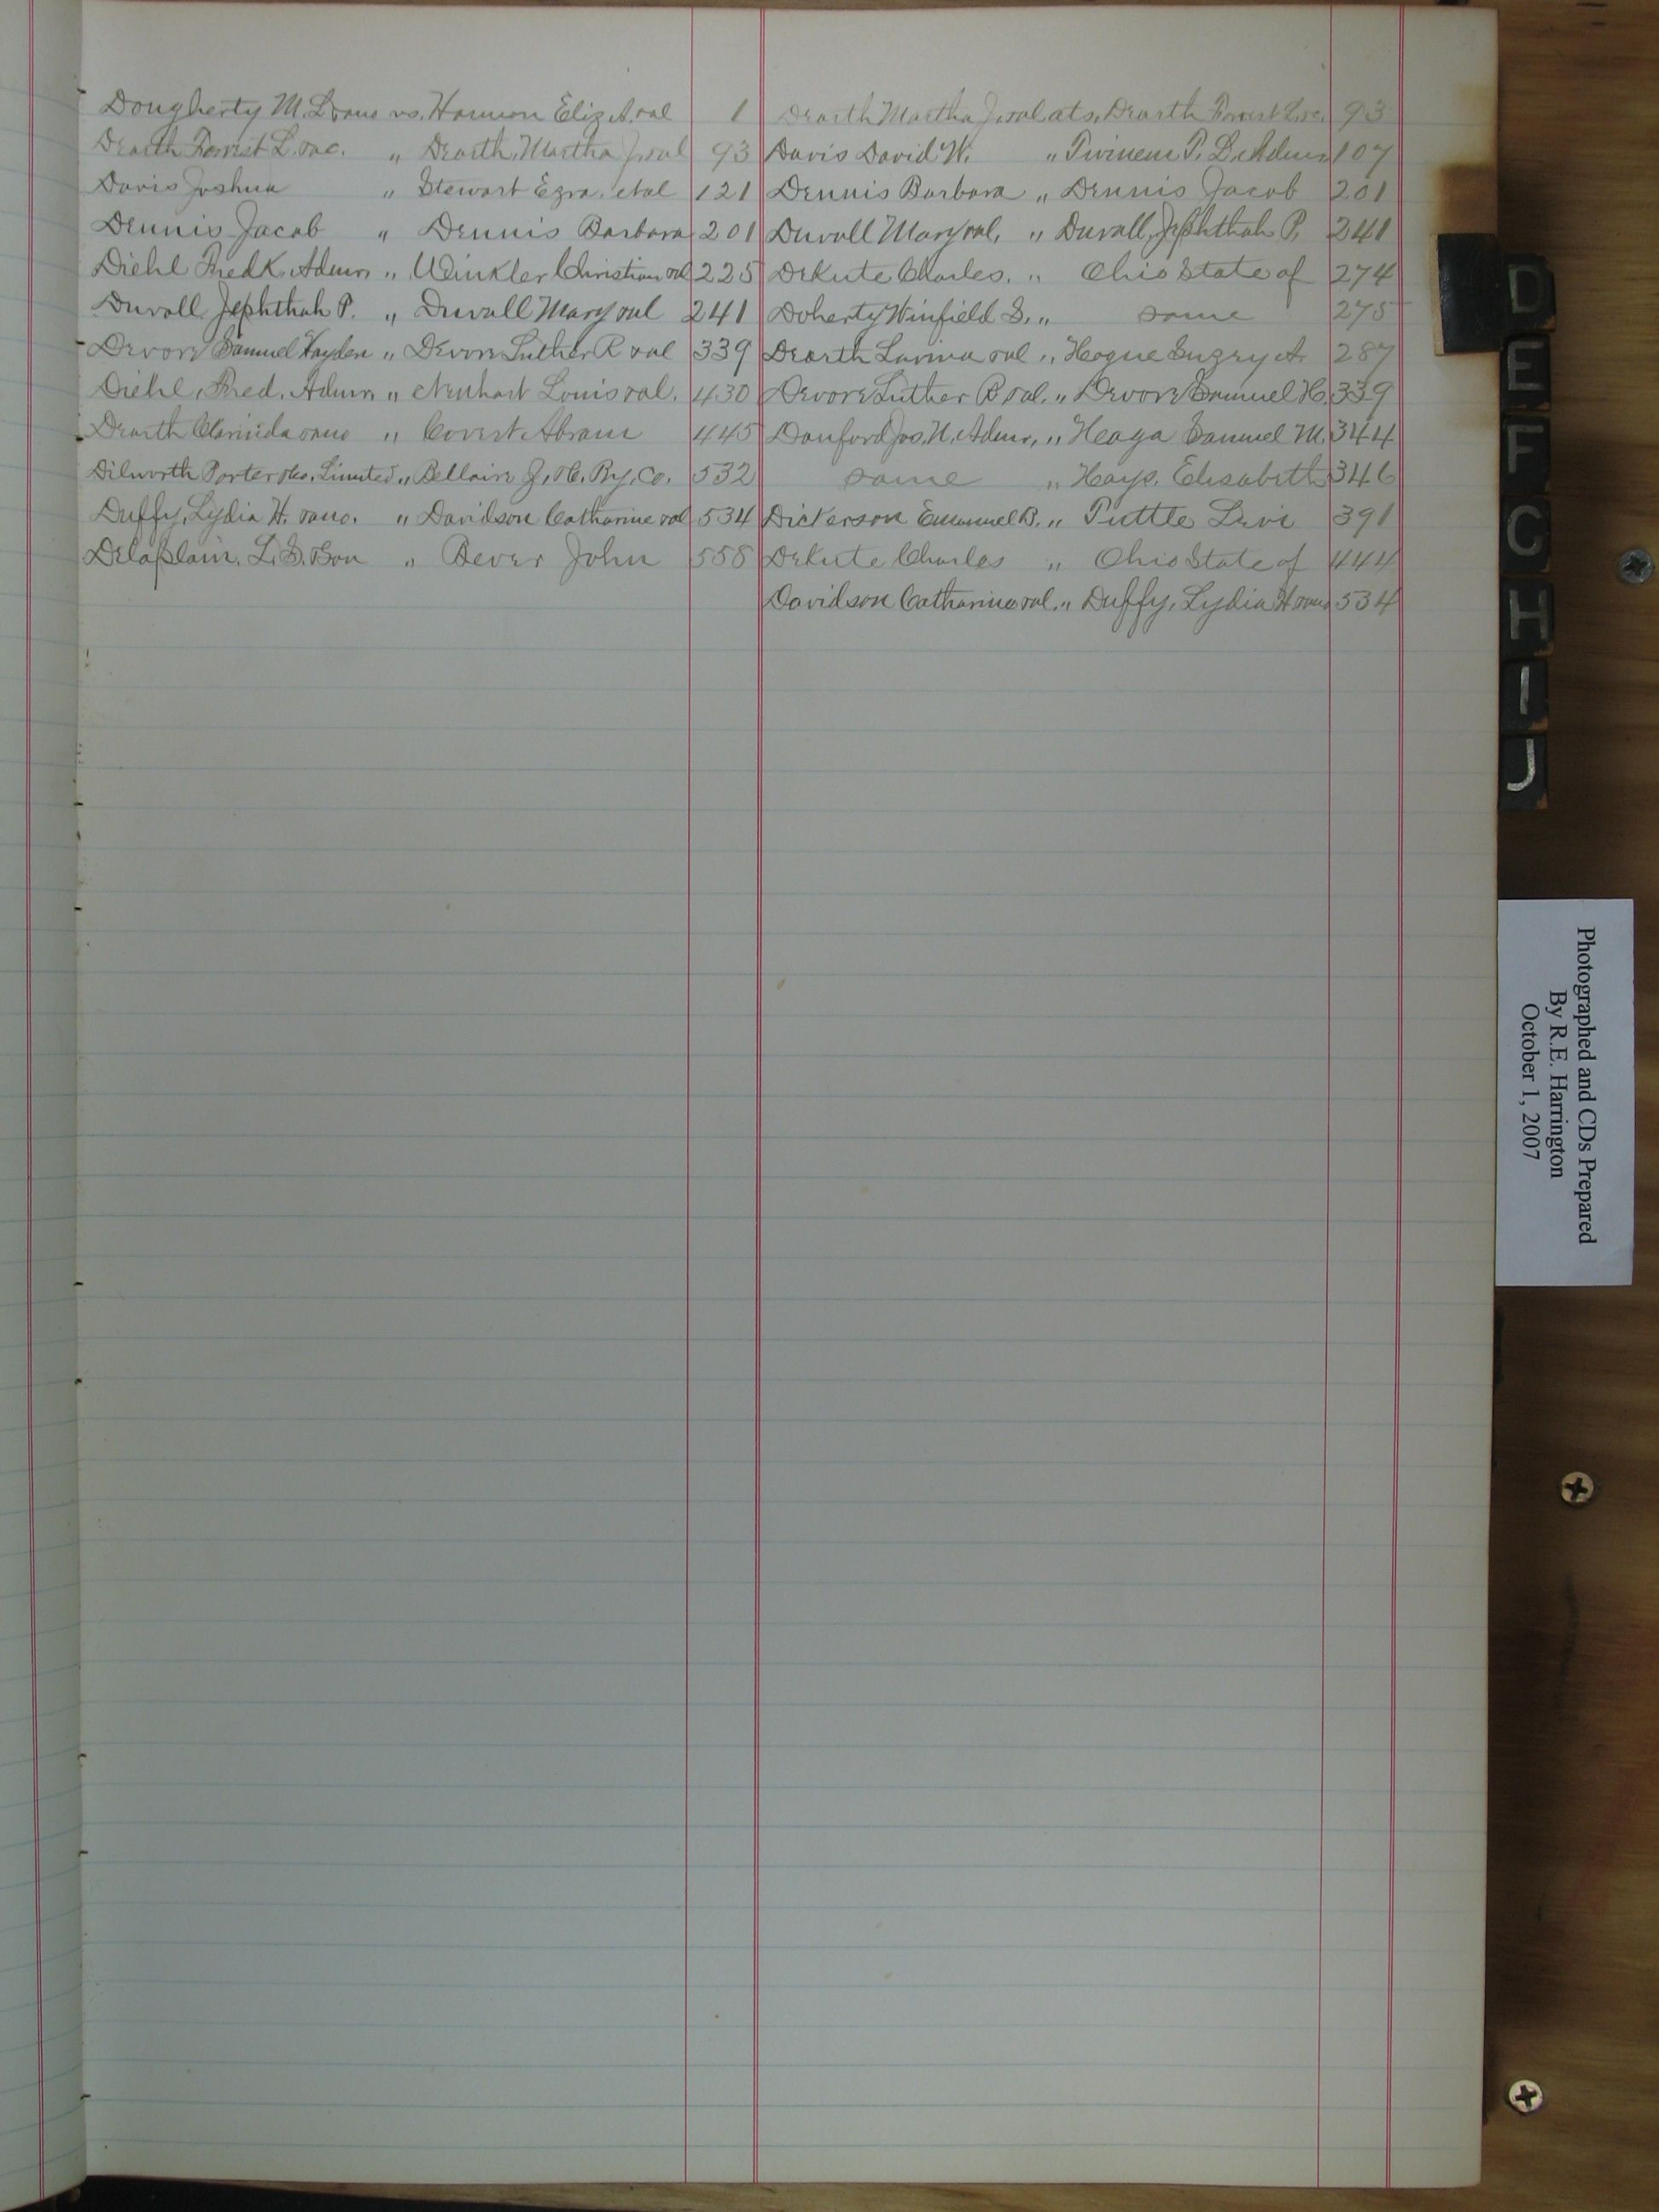 Dougherty M. L. vs. Eliz A. 1
Dearth Forrest L. " Dearth, Martha J. 93
Davis Joshua " Stewart Ezra. etal 121
Dennis Jacob " Dennis Barbara 201
Diehl Fredk. Admr. " Winkler Christian 225
Duvall, Jephthah P. " Duvall Mary 241
Devore Samuel Hayden " Devore Luther R 339
Diehl, Fred. Admr. " Neuhart Louis 430
Dearth Clarinda " Covert Abram 445
Dilworth Porter Limited " Bellaire Z. & C. Ry. Co. 532
Duffy, Lydia H. " Davidson Catharine 534
Delaplain, L. S. Son " Bever John 558
Dearth Martha J. ats. Dearth Forrest L. 93
Davis David W. " Twinem P. D. Admr 107
Dennis Barbara " Dennis Jacob 201
Duvall Mary " Duvall, Jephthah P. 241
DeKute Charles. " Ohio State of 274
Doherty Winfield S. " same 275
Dearth Lavina " Hogue A. 287
Devore Luther R " Devore Samuel H. 339
Danford Jos. N. Admr. " Heaga Samuel M. 344
same " Hays. Elizabeth 346
Dickerson Emanuel B. " Tuttle Levi 391
DeKute Charles " Ohio State of 444
Davidson Catharine " Duffy, Lydia H 534
D
E
F
G
H
I
J
Photographed and CDs Prepared
By R.E. Harrington
October 1, 2007